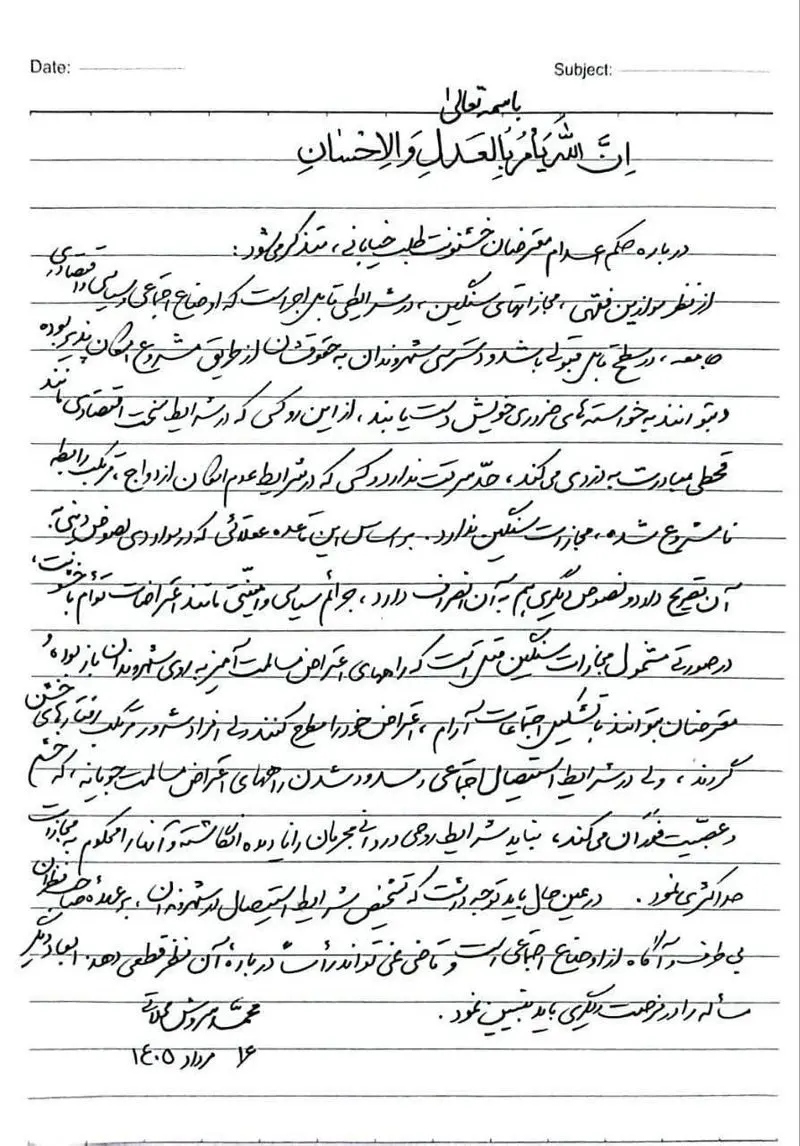 Date:
Subject:
باسمه تعالی
اِنَّ اللّٰهَ یَأْمُرُ بِالعَدلِ وَ الاِحْسَانِ
درباره حکم اعدام معترضان خشونت طلب خیابانی، متذکر می‌شود:
از نظر موازین فقهی، مجازاتهای سنگین، در شرایطی قابل اجراست که اوضاع اجتماعی و سیاسی و اقتصادی
جامعه، در سطح قابل قبولی باشد و دسترسی شهروندان به حقوقشان از طریق مشروع امکان پذیر بوده
و بتوانند به خواسته‌های ضروری خویش دست یابند، از این رو کسی که در شرایط سخت اقتصادی مانند
قحطی مبادرت به دزدی می‌کند، حدّ سرقت ندارد و کسی که در شرایط عدم امکان ازدواج، مرتکب رابطه
نامشروع شده، مجازات سنگین ندارد. بر اساس این قاعده عقلائی که در مواردی نصوص دینی به
آن تصریح دارد و نصوص دیگری هم به آن انصراف دارد، جرائم سیاسی و امنیتی مانند اعتراضات توأم با خشونت،
در صورتی مشمول مجازات سنگین قتل است که راههای اعتراض مسالمت آمیز به روی شهروندان باز بوده و
معترضان بتوانند با تشکیل اجتماعات آرام، اعتراض خود را مطرح کنند ولی افراد شرور مرتکب رفتارهای خشن
گردند، ولی در شرایط استیصال اجتماعی و مسدود شدن راههای اعتراض مسالمت جویانه، که خشم
و عصبیت فوران می‌کند، نباید شرایط روحی و روانی مجرمان را نادیده انگاشته و آنها را محکوم به مجازات
حداکثری نمود. در عین حال باید توجه داشت که تشخیص شرایط استیصال در شهروندان، بر عهده صاحب نظران
بی طرف و آگاه از اوضاع اجتماعی است و قاضی نمی تواند رأساً درباره آن نظر قطعی دهد. ابعاد دیگر
مسأله را در فرصت دیگری باید تبیین نمود.
محمد سروش محلاتی
۱۶ مرداد ۱۴۰۵